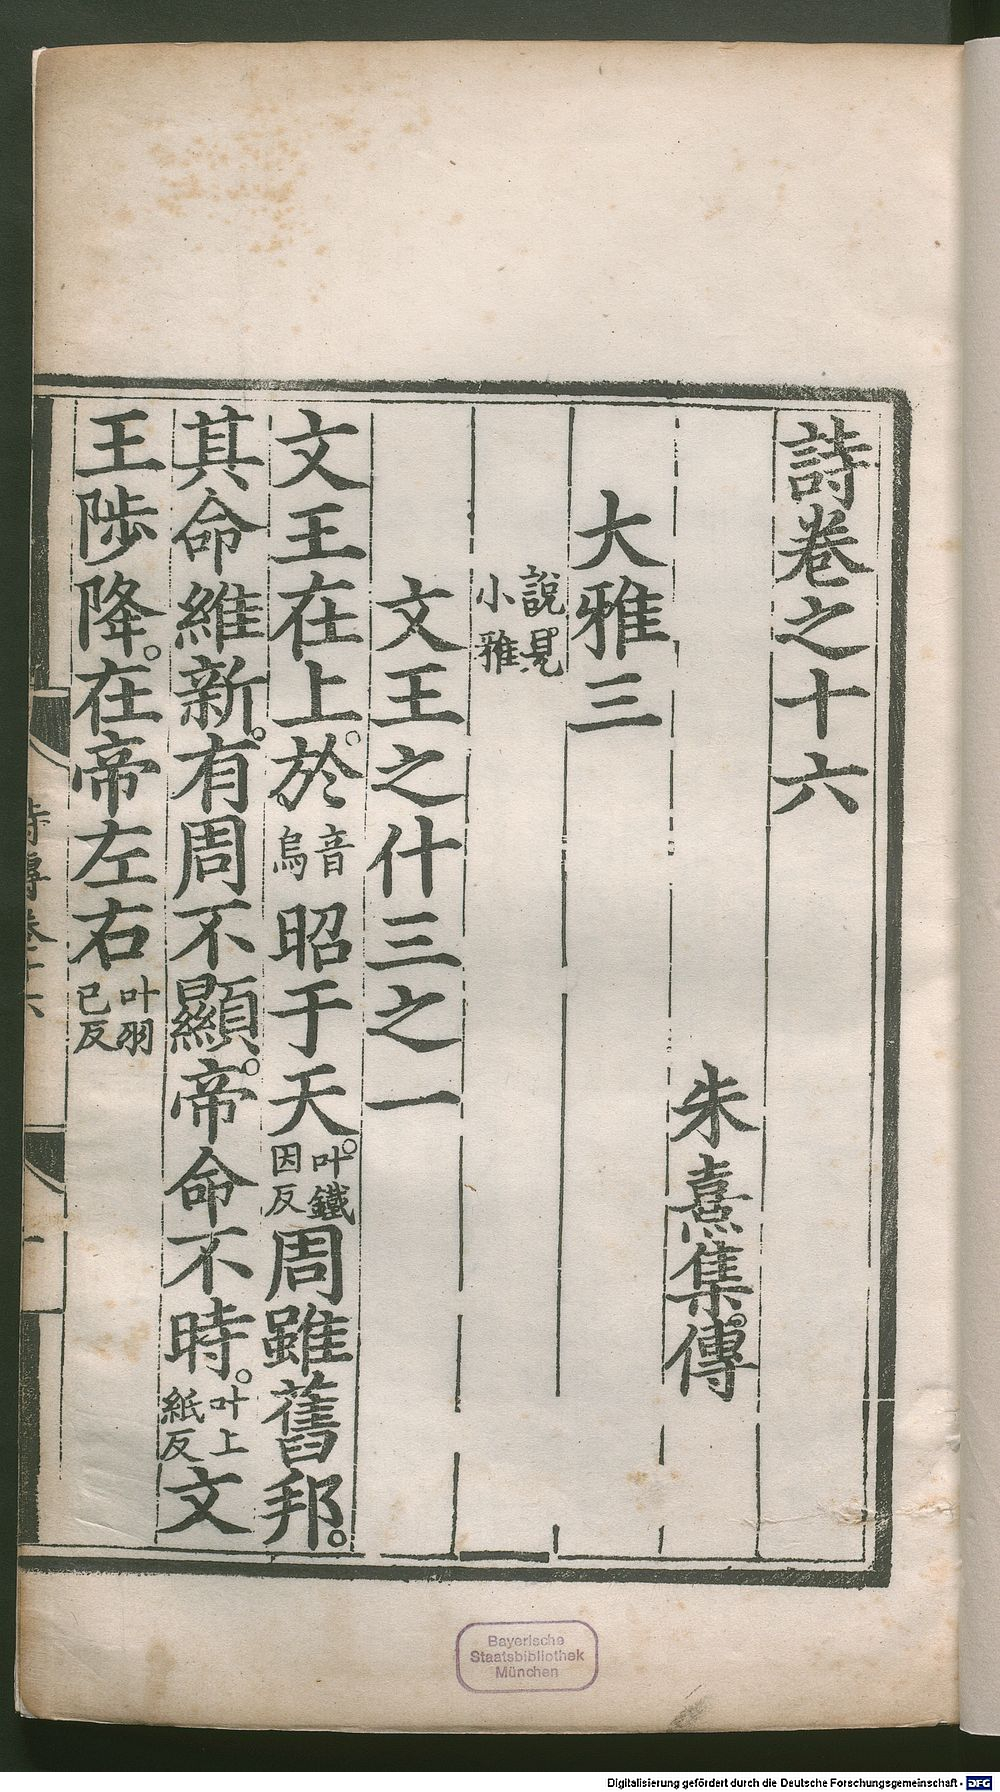 詩卷之十六
朱熹集傳
大雅三
說見小雅
文王之什三之一
文王在上。於音烏昭于天。叶鐵因反周雖舊邦。
其命維新。有周不顯。帝命不時。叶上紙反文
王陟降。在帝左右叶羽已反
詩傳卷十六
一
Bayerische
Staatsbibliothek
München
Digitalisierung gefördert durch die Deutsche Forschungsgemeinschaft - DFG